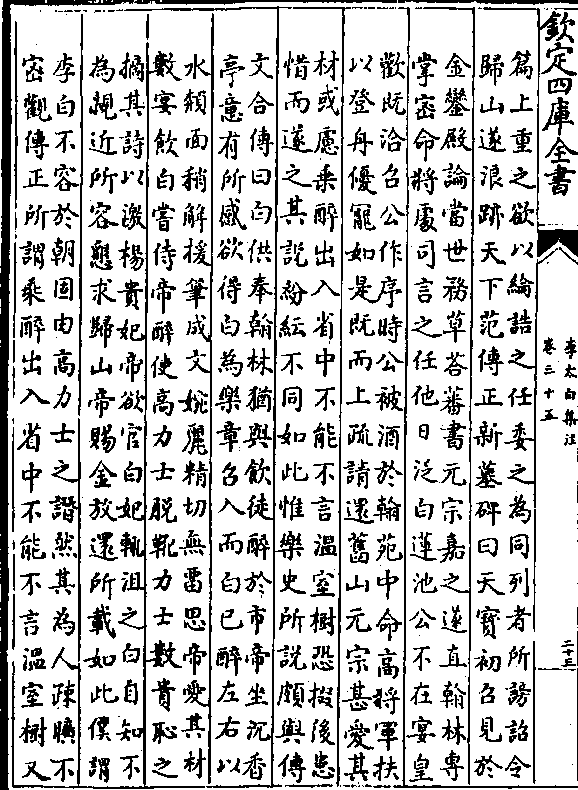 欽定四庫全書
李太白集注
卷三十五
二十三
篇上重之欲以綸誥之任委之為同列者所謗詔令
歸山遂浪跡天下范傳正新墓碑曰天寳初召見於
金鑾殿論當世務草荅蕃書元宗嘉之遂直翰林專
掌密命將處司言之任他日泛白蓮池公不在宴皇
歡既洽召公作序時公被酒於翰苑中命高將軍扶
以登舟優寵如是既而上疏請還舊山元宗甚愛其
材或慮乗醉出入省中不能不言溫室樹恐掇後患
惜而遂之其說紛紜不同如此惟樂史所說頗與傳
文合傳曰白供奉翰林猶與飲徒醉於市帝坐沉香
亭意有所感欲得白為樂章召入而白已醉左右以
水頮面稍解援筆成文婉麗精切無留思帝愛其材
數宴飲白嘗侍帝醉使高力士脫靴力士數貴恥之
摘其詩以激楊貴妃帝欲官白妃輒沮之白自知不
為親近所容懇求歸山帝賜金放還所載如此僕謂
李白不容於朝固由高力士之譖然其為人疎曠不
密觀傳正所謂乗醉出入省中不能不言溫室樹又